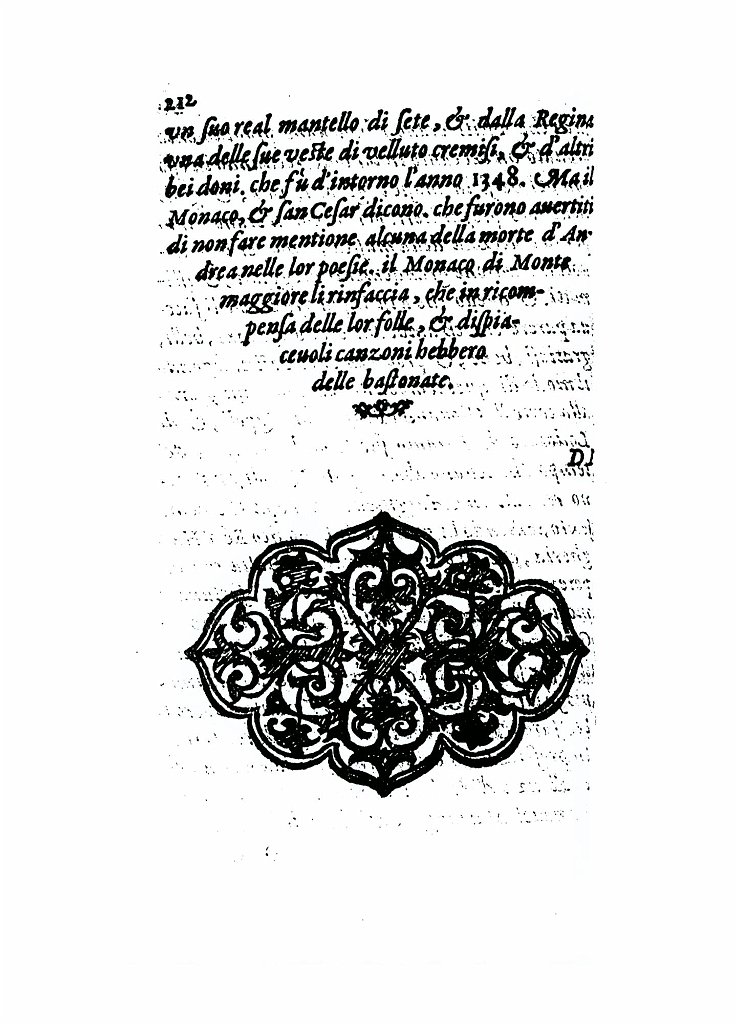 212
vn ſuo real mantello di ſete, & dalla Regina
vna delle ſue veſte di velluto cremiſi, & d'altri
bei doni. che fù d'intorno l'anno 1348. Ma il
Monaco, & ſan Ceſar dicono. che furono auertiti
di non fare mentione alcuna della morte d'An-
drea nelle lor poeſie. il Monaco di Monte
maggiore li rinfaccia, che in ricom-
penſa delle lor folle, & diſpia-
ceuoli canzoni hebbero
delle baſtonate.
DI